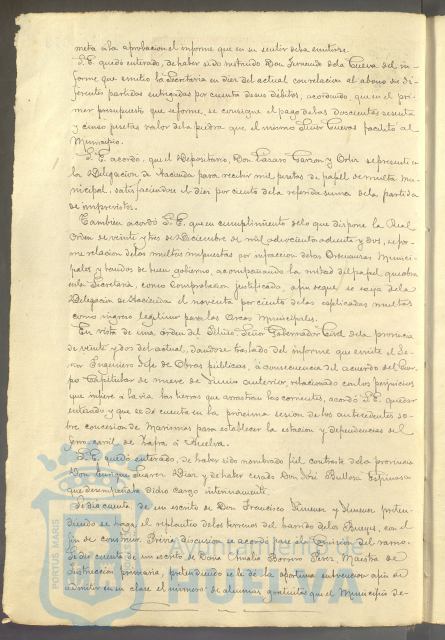 meta a la aprobacion el informe que en su sentir deba emitirse.
S. E. quedó enterado, de haber sido instruido Don Fernando de la Cueva del in-
forme que emitio la Secretaria en diez del actual con relacion al abono de di-
ferentes partidas entregadas por cuenta de sus débitos, acordando, que en el pri-
mer presupuesto que se forme, se consigne el pago de las doscientas sesenta
y cinco pesetas valor de la piedra que el mismo Señor Cuevas facilitó al
Municipio.
S. E. acordó, que el Depositario, Don Lázaro Garzon y Ortiz se presente en
la Delegacion de Hacienda para recibir mil pesetas de papel de multa mu-
nicipal, satisfaciendose el diez por ciento de la referida suma de la partida
de imprevistos.
Tambien acordó S. E. que en cumplimiento de lo que dispone la Real
Orden de veinte y tres de Diciembre de mil ochocientos ochenta y dos, se for-
me relacion de las multas impuestas por infraccion de las Ordenanzas Munici-
pales y bandos de buen gobierno, acompañando la mitad del papel que obra
en la Secretaria, como comprobacion justificada, afin de que se exija de la
Delegacion de Hacienda el noventa por ciento de las esplicadas multas
como ingreso legitimo para las Arcas Municipales.
En vista de una orden del Iltmo. Señor Gobernador Civil de la provincia
de veinte y dos del actual, dandose traslado del informe que emite el Se-
ñor Ingeniero Jefe de Obras públicas, á consecuencia del acuerdo del Cuer-
po Capitular de nueve de Junio anterior, relacionado con los perjuicios
que infiere a la via las tierras que arrastran las corrientes, acordó S. E. quedar
enterado y que se dé cuenta en la proxima sesion de los antecedentes so-
bre concesion de Marismas para establecer la estacion y dependencias del
ferro-carril de Zafra á Huelva.
S. E. quedó enterado, de haber sido nombrado fiel contraste de la provincia
Don Enrique Suarez Diaz y de haber cesado Don José Espinosa
que desempeñaba dicho cargo interinamente.
Se dió cuenta de un escrito de Don Francisco Jimenez y Jimenez preten-
diendo se haga el replanteo de los terrenos del barrido de los con el
fin de construir. Previa discusion se acordó pase á la Comision del ramo.
Se dió cuenta de un escrito de Doña Amalia Borrero Perez, Maestra de
Instruccion primaria, pretendiendo se le dé la oportuna autorizacion afin de
admitir en su clase el número de alumnas gratuitas que el Municipio de-
PORTUS MARIS
Ayuntamiento de
HUELVA